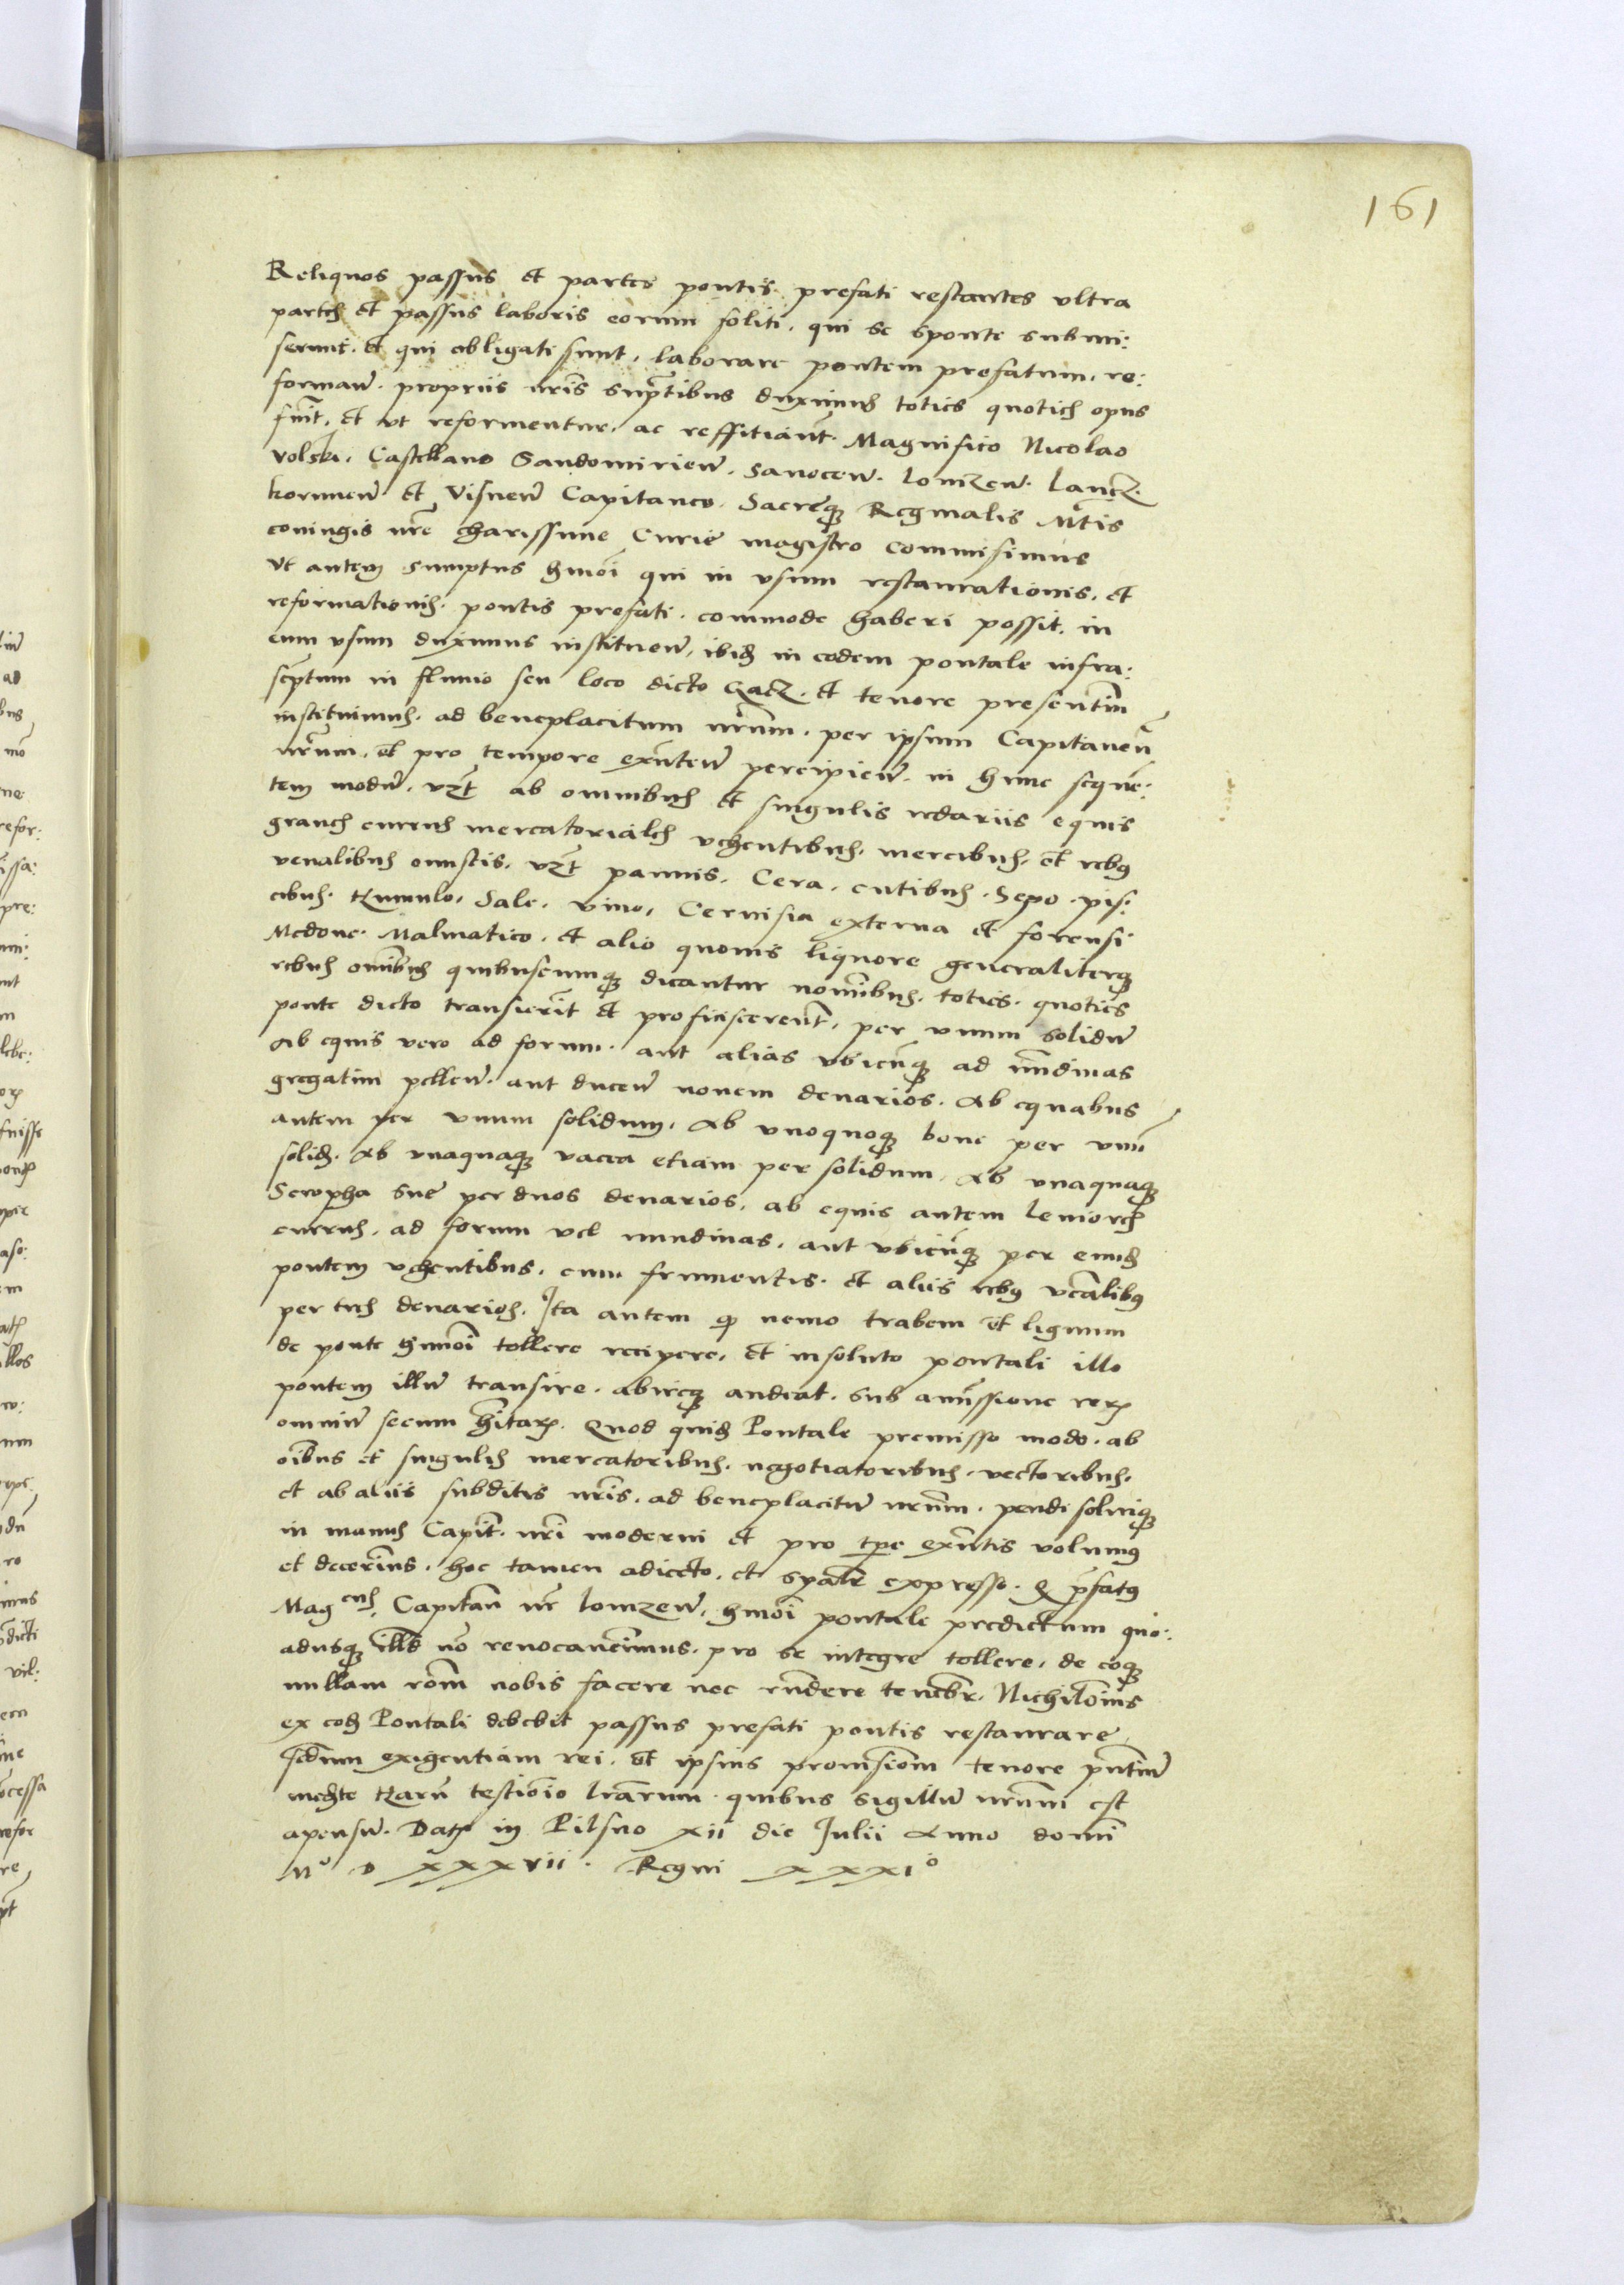 161
Reliquos passus et partes pontis prefati restantes ultra
partes et passus laboris eorum soliti. qui se sponte submi:
serunt. et qui obligati sunt, laborare pontem prefatum, re:
formanꝰ. propriis nr̃is sup̃tibus duximus toties quoties opus
fuit, et ut reformentur, ac reffitiant̃. Magnifico Nicolao
volski, Castellano Sandomirienꝰ. Sanocenꝰ. lomzenꝰ. lancz.
korunenꝰ et Visnenꝰ Capitaneo. Sacreq̃ Reginalis Mt̃is
coniugis nr̃e charissime Curie magistro commisimus
Ut autem sumptus hmõi qui in usum restaurationis, et
reformationis. pontis prefati. commode haberi possit. in
eum usum duximus instituenꝰ, ibid̃ in eodem pontale infra:
scp̃tum in fluvio seu loco dicto Gacz. et tenore presentiũ
instituimus. ad beneplacitum nr̃um. per ipsum Capitaneũ
nr̃um, et pro tempore exñtenꝰ percipienꝰ. in hunc sequẽ:
tem modũ. vzt̃ ab omnibus et singulis redariis equis
graves currus mercatoriales vehentibus. mercibus. et rebꝰ
venalibus onustis. vzt̃ pannis. Cera. cutibus. Sepo. pis:
cibus. Humulo, Sale. vino, Cervisia externa et forensi
Medone. Malmatico. et alio quovis liquore generaliterq̃
rebus om̃ibus quibuscumq̃ dicantur nom̃ibus. toties. quoties
ponte dicto transierit̃ et proficiscerent̃, per unum solidũ
Ab equis vero ad forum. aut alias ubicũq̃ ad nundinas
gregatim pellenꝰ. aut ducenꝰ novem denarios. Ab equabus
antem per unum solidum. Ab unoquoq̃ bove per unũ
solid̃. Ab unaquaq̃ vacca etiam per solidum, Ab unaquaq̃
Scropha sue per duos denarios, ab equis autem leviores
currus. ad forum vel nundinas, aut ubicũq̃ per eund̃
pontem vehentibus. cum frumentis. et aliis rebꝰ venãlibꝰ
per tres denarios. Ita autem q̃ nemo trabem et lignum
de ponte hmõi tollere recipere, et insoluto pontali illo
pontem illũ transire. abireq̃ audeat. sub amissione reꝝ
omniũ secum hr̃itaꝝ. Quod quid̃ Pontale premisso modo. ab
oĩbus et singulis mercatoribus. negotiatoribus. vectoribus.
et ab aliis subditis nr̃is. ad beneplacitũ nr̃um. pendi solviq̃
in manus Capit̃. nr̃i moderni et pro tp̃e exñtis volumꝰ
et decerñimus. hoc tamen adiecto. et sp̃alr̃ expresso. q̃ p̃fatꝰ
Mag cus Capitañ nr̃ lomzenꝰ. hmõi pontale predictum quo:
adusq̃ illd̃ nõ revocaverimus. pro se integre tollere, de eoq̃
nullam rõem nobis facere nec rñdere tenebr̃. Nichilomĩns
ex eod̃ Pontali debebit passus prefati pontis restaurare
scd̃um exigentiam rei. et ipsius provisiõem tenore pñtiũ
med̃te harũ testiõnio lr̃arum. quibus sigillũ nr̃um est
apensũ. Datꝝ in Pilsno xii die Julii Anno domĩ
Mº D xxxvii. Regni xxxiº